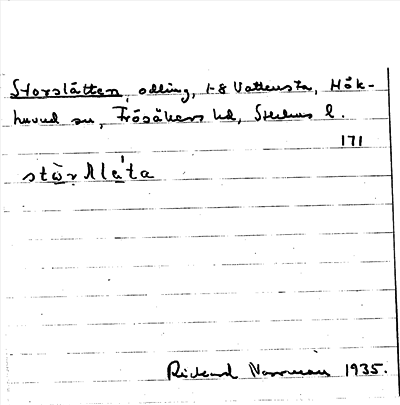 Storslåtten, odling, 1-8 Vattensta, Hök-
huvud sn, Frösåkers hd, Sthlms l.
171
stòr slåta
Rickard Norrman 1935.